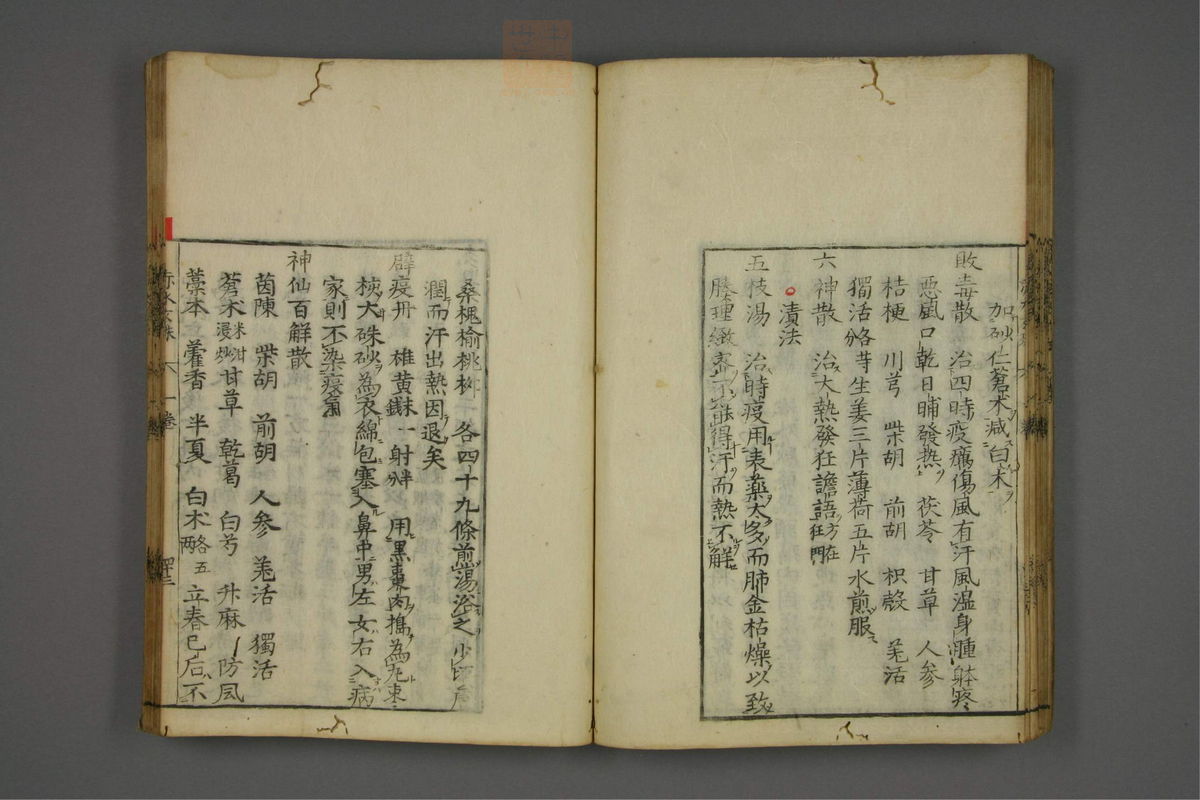 加砂仁蒼朮減白朮
敗毒散　治四時疫癘傷風有汗風温身腫躰疼
惡風口乾日晡發熱　茯苓　甘草　人参
桔梗　川芎　柴胡　前胡　枳殻　羌活
獨活各等分生姜三片薄荷五片水煎服
六神散　治大熱發狂譫語方在狂門
漬法
五枝湯　治時疫用表藥太多而肺金枯燥以致
腠理緻密不能得汗而熱不解
桑槐榆桃柳各四十九條煎湯浴之少頃
潤而汗出熱因退矣
辟疫丹　雄黄一錢射半分　用黒棗肉搗為丸棗
核大硃砂為衣綿包塞入鼻中男左女右入病
家則不染疫氣
神仙百解散
茵陳　柴胡　前胡　人参　羌活　獨活
蒼朮米泔浸炒甘草　乾葛　白芍　升麻　防風
藁本　藿香　半夏　白朮各五兩　立春已后不
赤水玄珠　一卷